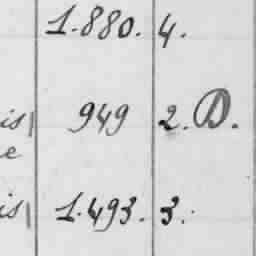 1.880. 4.
is| 949 2. D.
e
is| 1.493. 3.